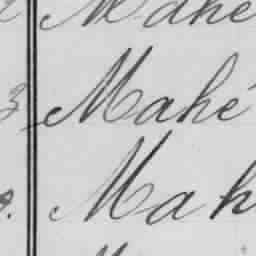 Mahé
3 Mahé
Mah